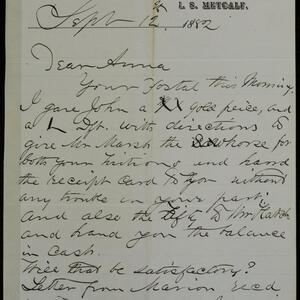 L. S. METCALF.
Sept 12 1882
Dear Anna
Your Postal this Morning.
I gave John a gold peice, and
a Dft. with directions to
give Mr Marsh the horse for
both your tuitions and hand
the receipt card to you without
any trouble on your part,
and also the to Mr
and hand you the balance
in cash.
Will that be satisfactory?
Letter from Marion Recd